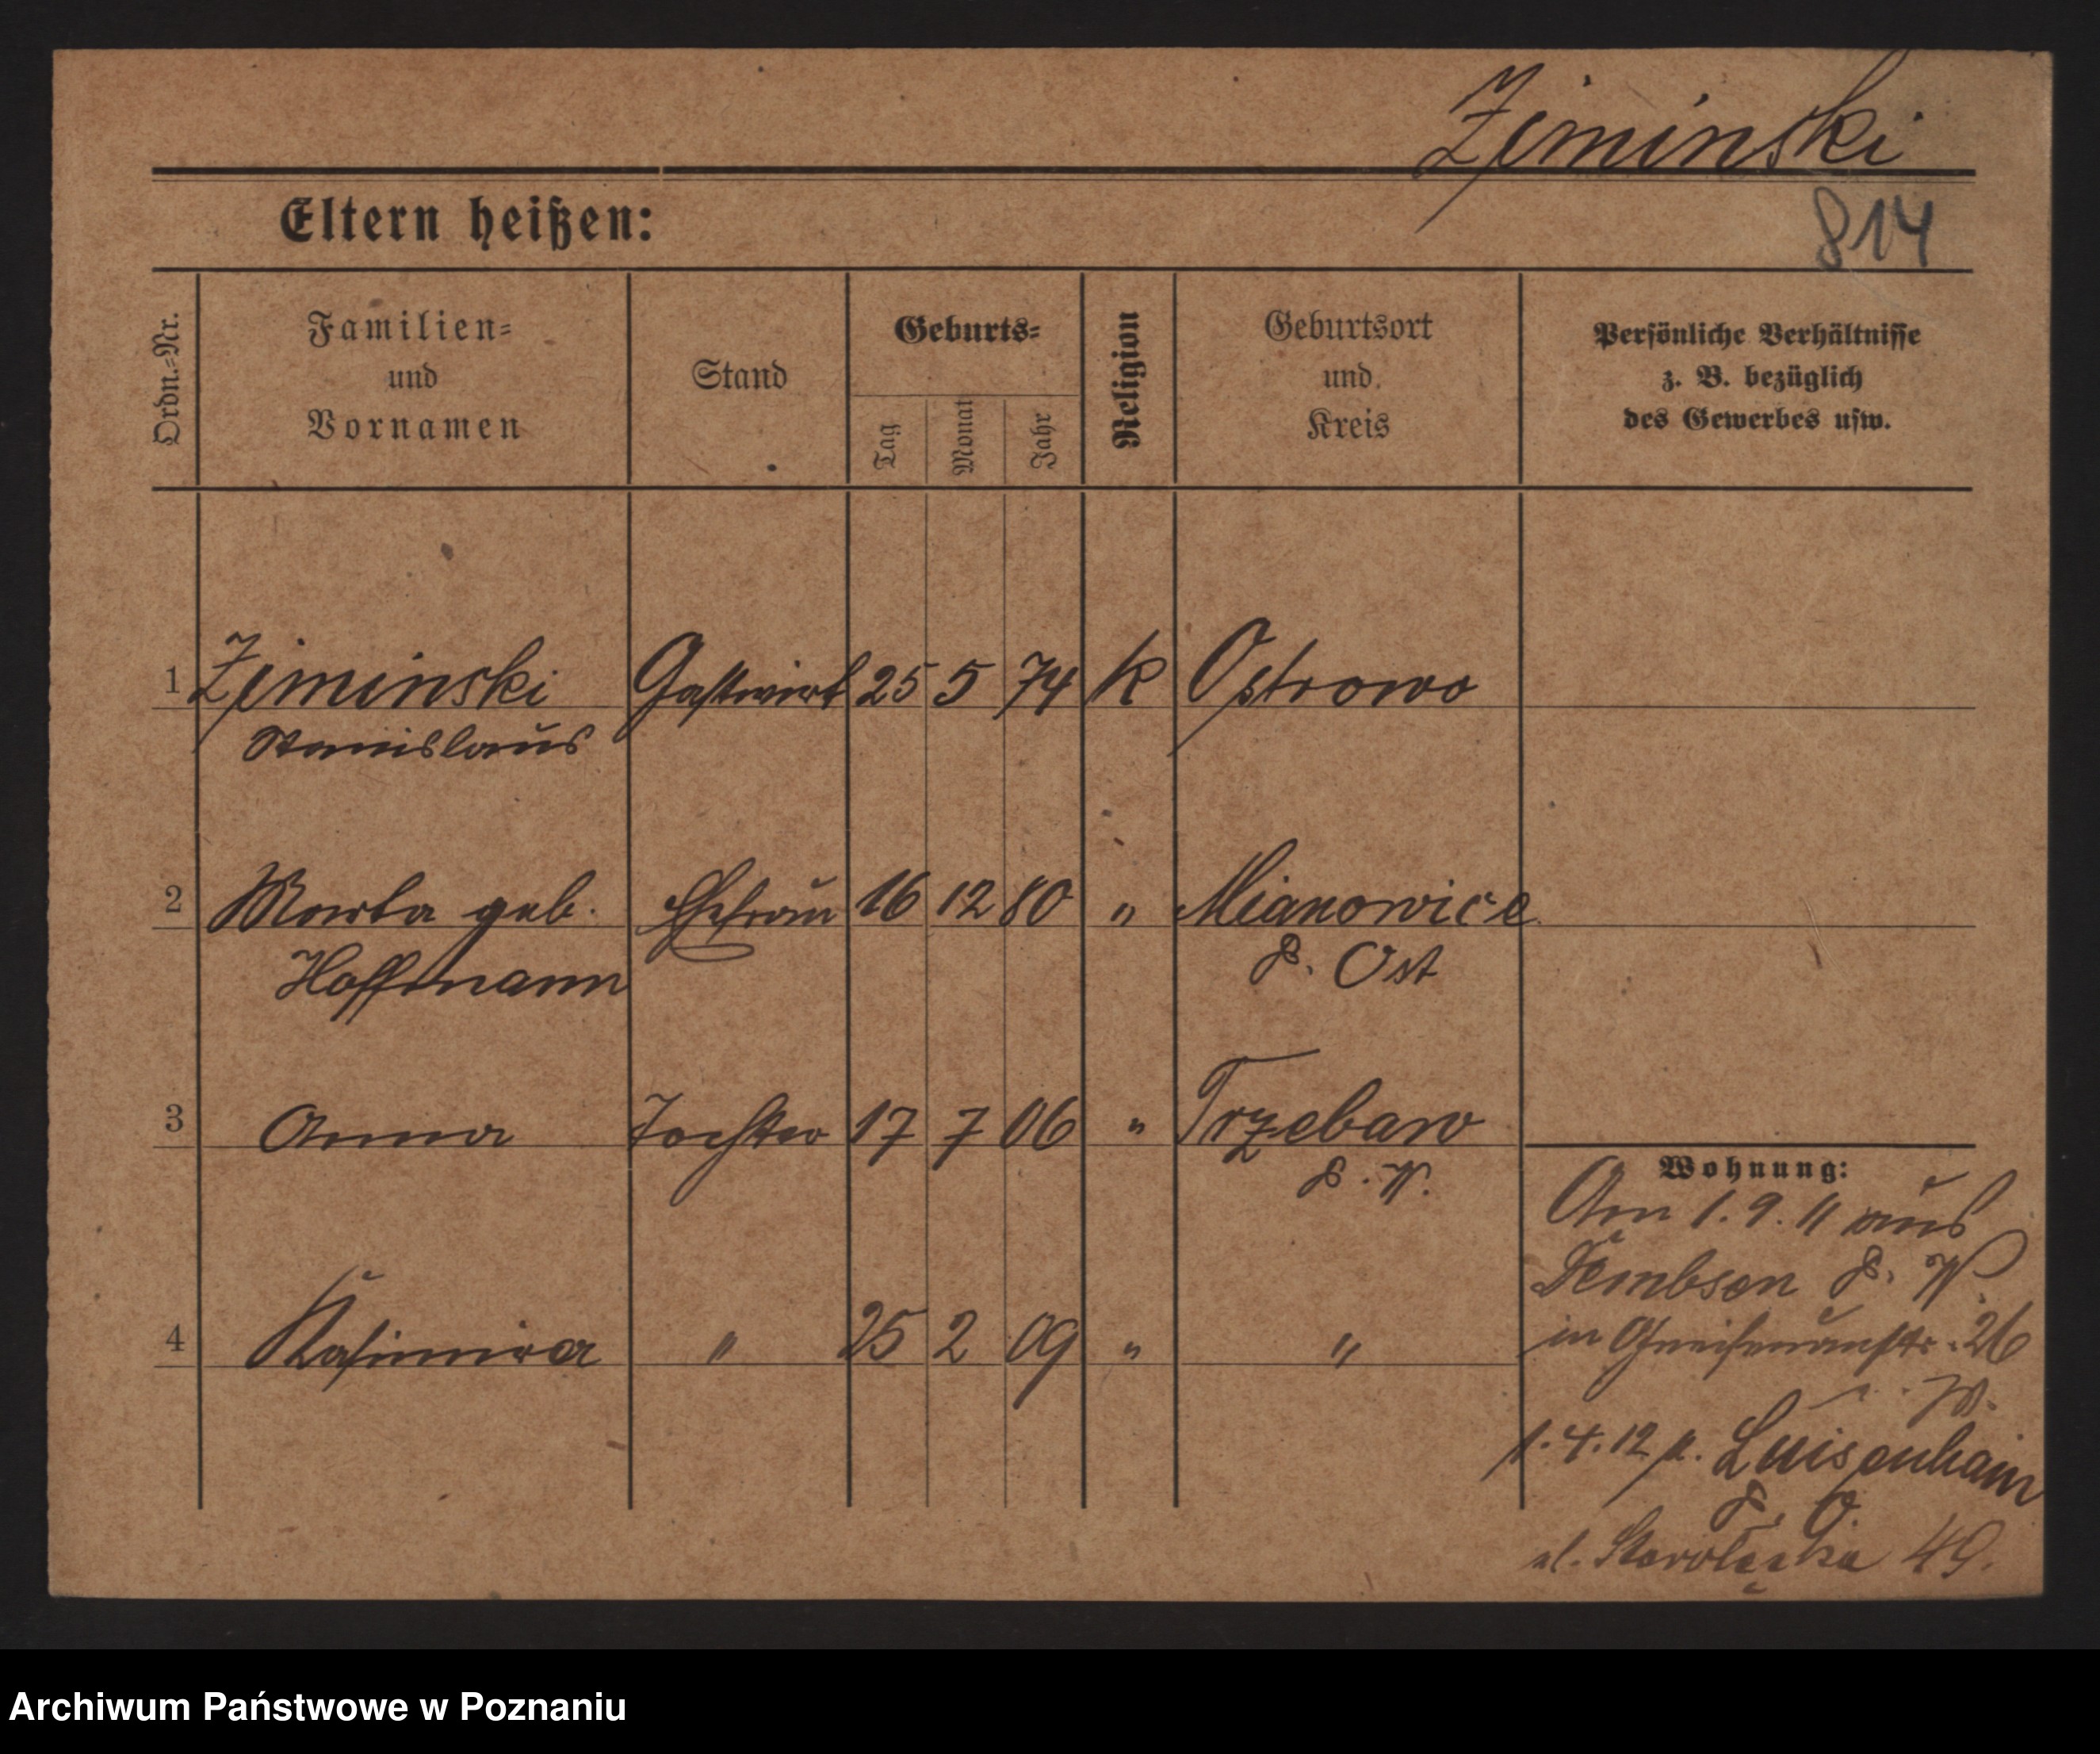 Ziminski
814
Eltern heißen:
Ordn.=Nr.
Familien=
und
Vornamen
Stand
Geburts=
Tag
Monat
Jahr
Religion
Geburtsort
und
Kreis
Persönliche Verhältnisse
z. B. bezüglich
des Gewerbes usw.
1 Ziminski Gastwirt 25 5 74 K Ostrowo
Stanislaus
2 Marta geb. Ehefrau 16 12 80 " Mianowice
Hoffmann P. Ost
3 Anna Tochter 17 7 06 " Trzebaw
P. W.
4 Kasimira " 25 2 09 " "
Wohnung:
Am 1.9.11 aus
Dembsen P. W.
in Gneisenaustr. 26
W.
1.4.12 n. Luisenhain
P. O.
ul. Starołęcka 49.
Archiwum Państwowe w Poznaniu